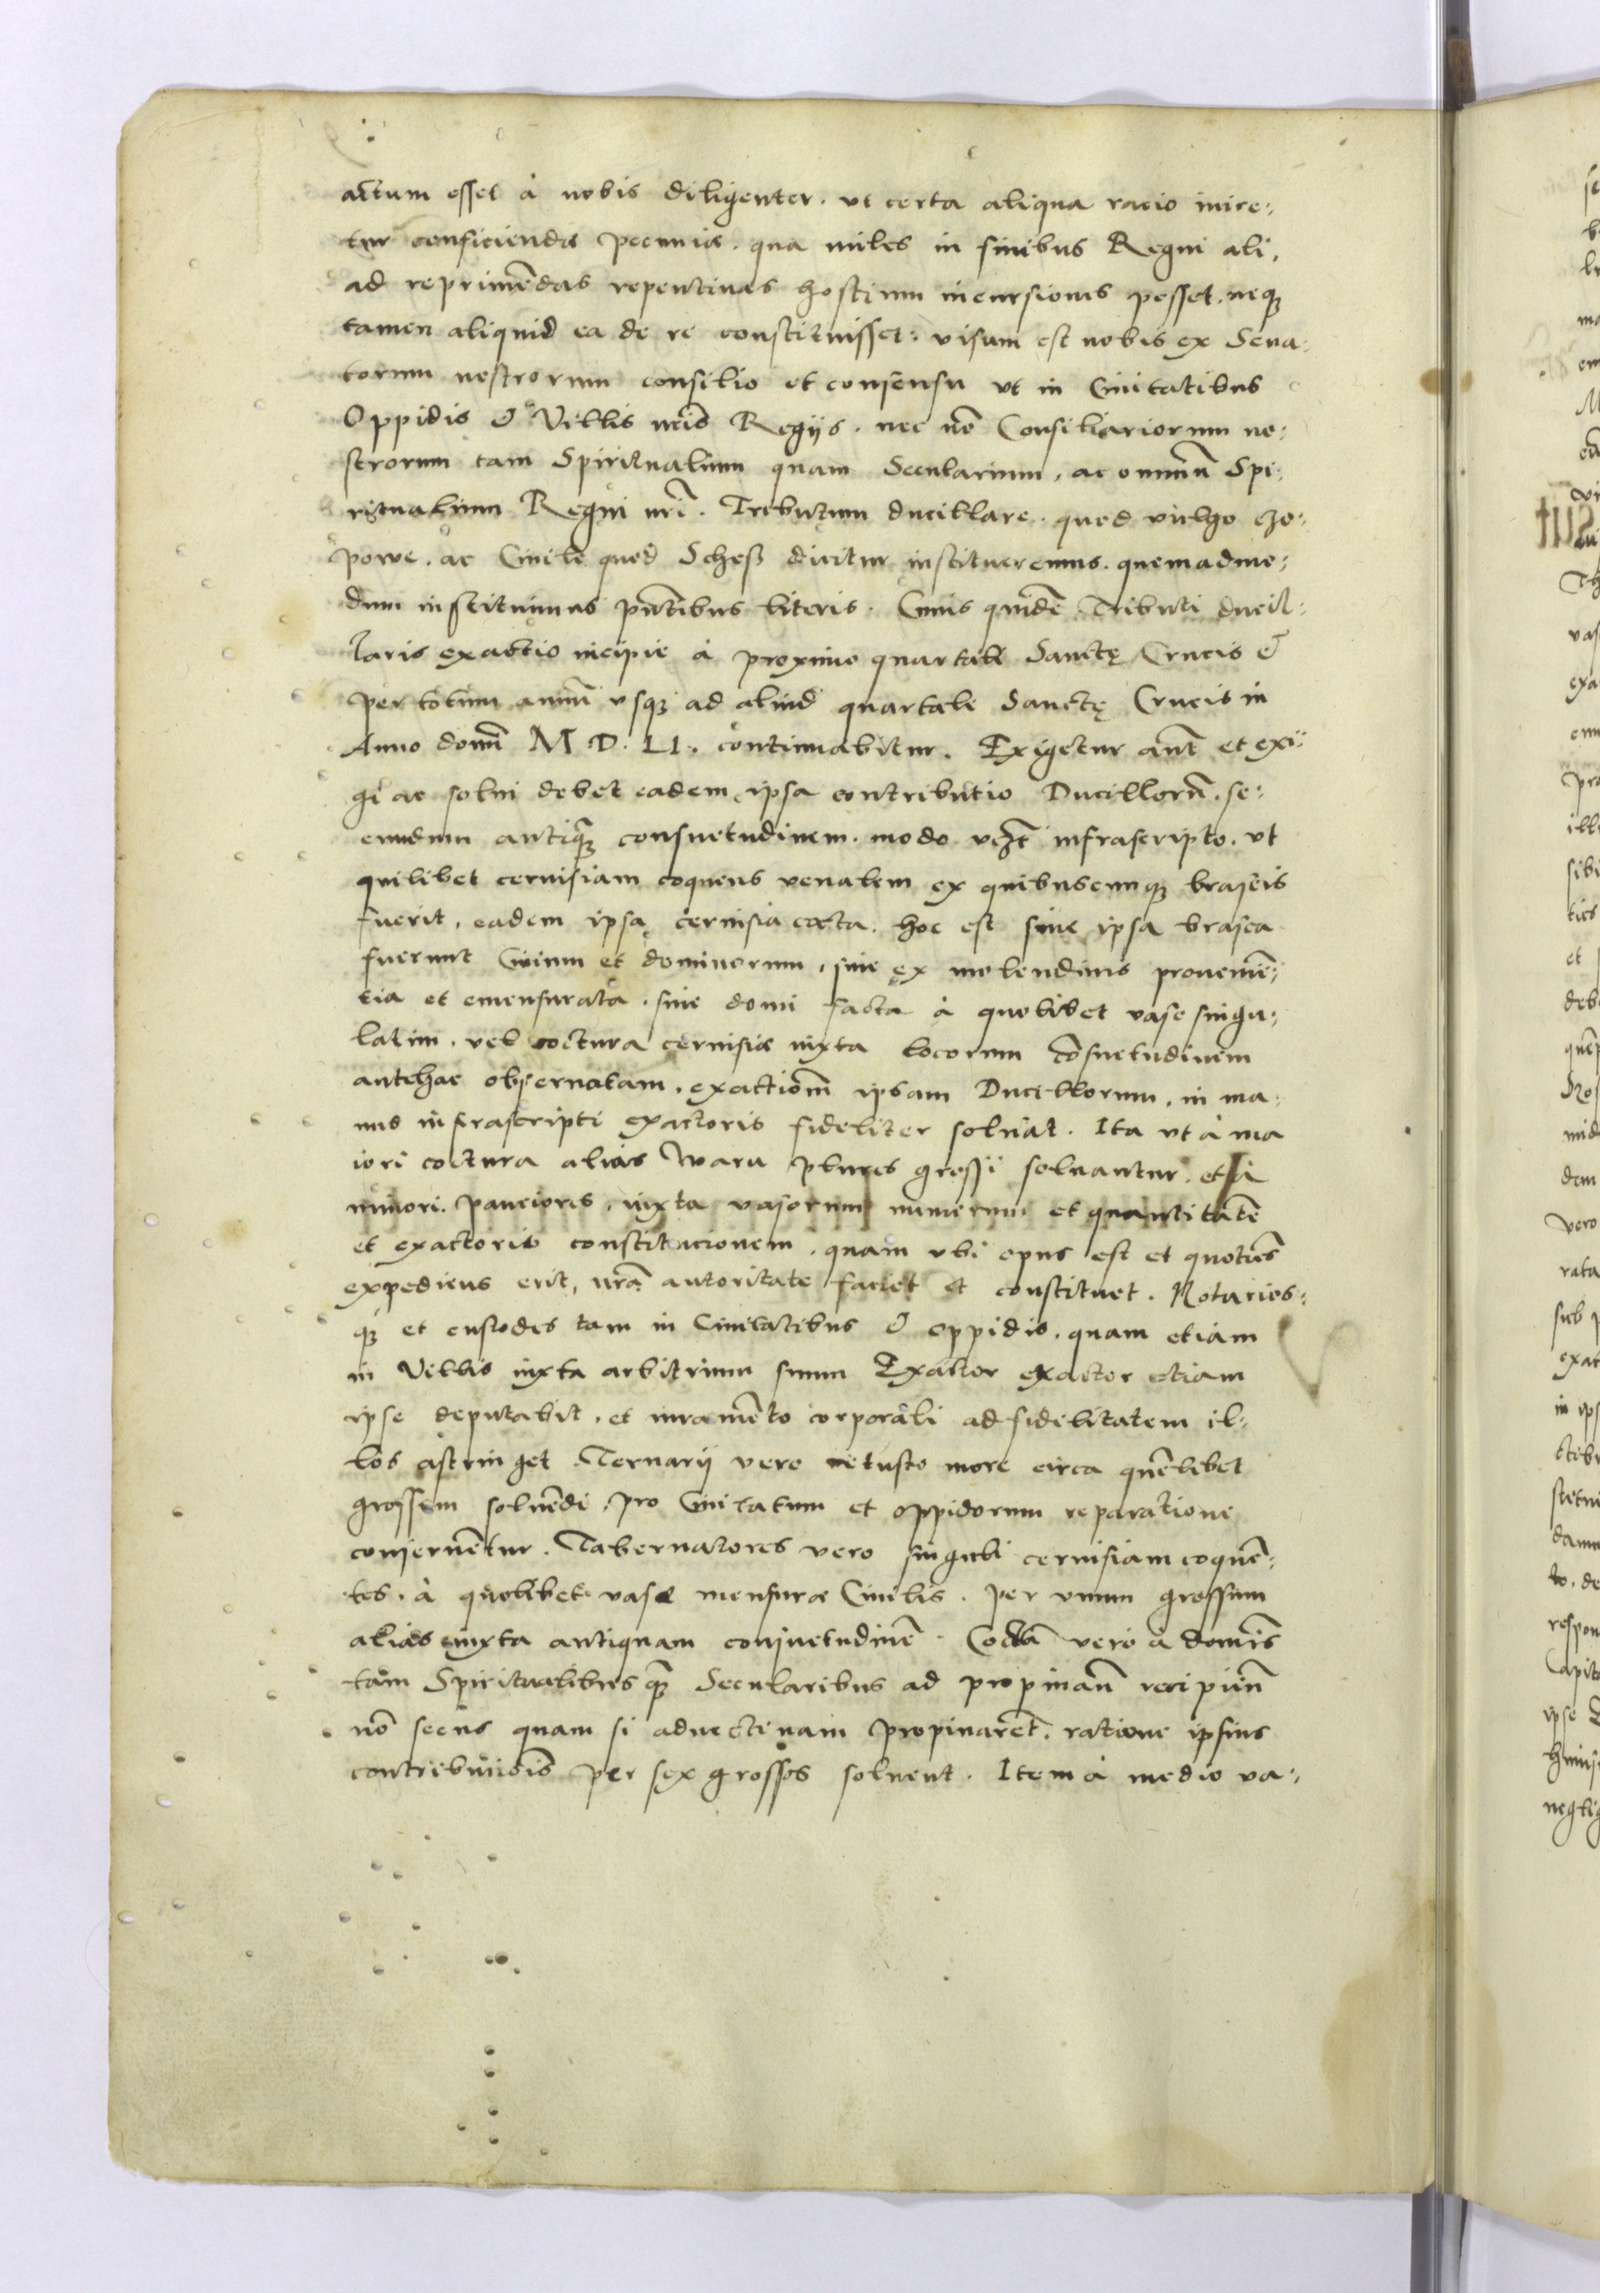 actum esset à nobis diligenter. vt certa aliqua racio inire:
tur conficiendæ pecuniæ. qua miles in finibus Regni ali,
ad reprimēdas repentinas hostium incursiones posset, neqʒ
tamen aliquid ea de re constituisset: visum est nobis ex Sena:
torum nostrorum consilio et consensu vt in Ciuitatibus
Oppidis & Villis nr̄is Regijs. nec nō Consiliariorum no:
strorum tam Spiritualium quam Secularium, ac omniū Spi:
ritualium Regni nr̄i. Tributum ducillare. quod vulgo czo:
powe. ac Ciuile quod Schosß dicitur institueremus. quemadmo:
dum instituimus pn̄tibus literis. Cuius quidē Tributi ducil:
laris exactio incipie à proximo quartali Sanctę Crucis &
per totum annū vsqʒ ad aliud quartale Sanctę Crucis in
Anno domī M D. LI. continuabitur. Exigetur aūt et exi:
gi ac solui debet eadem ipsa contributio Ducillorū. se:
cundum antiquā consuetudinem. modo vʒt infrascripto. vt
quilibet ceruisiam coquens venalem ex quibuscunqʒ braseis
fuerit, eadem ipsa ceruisia cocta. hoc est siue ipsa brasea
fuerint Ciuium et dominorum, siue ex molendinis prouenieē:
tia et emensurata. siue domi facta à quolibet vase singu:
latim. vel coctura ceruisiæ iuxta locorum cōsuetudinem
antehac obseruatam. exactionem ipsam Ducillorum, in ma:
nus infrascripti exactoris fideliter soluat. Ita vt à ma
iori coctura alias Waru plures grossi soluantur. et à
minori. pauciores, iuxta vasorum numerum et quantitatē
et exactoris constitucionem. quam vbi opus est et quoties
expediens erit, nr̄a autoritate faciet et constituet. Notarios:
qʒ et custodes tam in Ciuitatibus & oppidis. quam etiam
in Villis iuxta arbitrium suum Exactor exactor etiam
ipse deputabit, et iuramēto corporali ad fidelitatem il:
los astringet. Ternarij vero vetusto more circa quēlibet
grossum soluēdi, pro Ciuitatum et oppidorum reparatione
conseruētur. Tabernatores vero singuli ceruisiam coquē:
tes, à quolibet vase mensuræ Ciuilis. per vnum grossum
alias iuxta antiquam consuetudinē. Coctā vero à domis
tam Spiritualibus quā Secularibus ad propinanū recipiūn
nō secus quam si aduectinam propinarēt. ratione ipsius
contribuciōis per sex grossos soluent. Item à medio va: